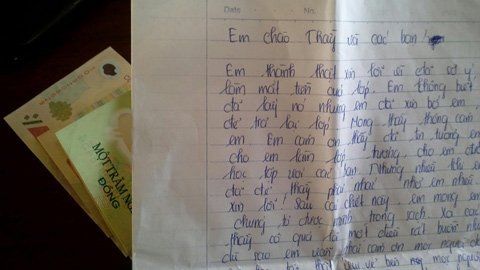 Date
No.
Em chào Thầy và các bạn!
Em thành thật xin lỗi vì đã sơ ý
làm mất tiền quỹ lớp. Em không biết
đã lấy nó nhưng em đã xin bố em
để trả lại lớp. Mong thầy thông cảm
em. Em cảm ơn thầy đã tin tưởng em
cho em làm lớp trưởng, cho em được
học tập với các bạn. Nhưng nhiều khi em
đã để thầy phải nhắc nhở em nhiều
xin lỗi! Sau cái chết này, em mong em
chứng tỏ được mình trong sạch. Xa các
thầy cô quả là một điều rất buồn
chỉ sao em vẫn phải cảm ơn mọi người
MỘT TRĂM
ĐỒNG